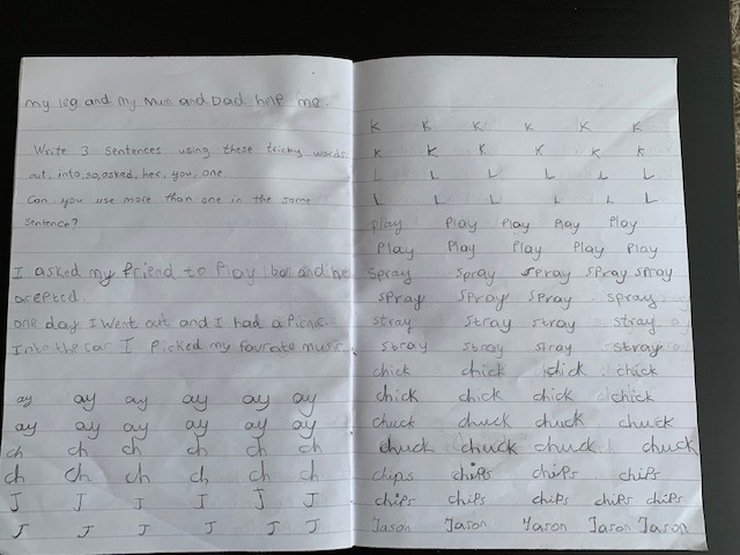 my leg and my Mum and Dad help me.
Write 3 sentences using these tricky words:
out, into, so, asked, her, you, one.
Can you use more than one in the same
sentence?
I asked my friend to Play ball and he
acepted.
one day I Went out and I had a Picnic.
Into the car I Picked my favrate music.
ay ay ay ay ay ay
ay ay ay ay ay ay
ch ch ch ch ch ch
ch ch ch ch ch ch
J J J J J J
J J J J J J
K K K K K K
K K K K K K
L L L L L L
L L L L L L
play Play Play Play Play
Play Play Play Play Play
Spray Spray Spray SPray Spray
SPray SPray Spray spray
stray stray stray stray
stray stray stray stray
chick chick chick chick
chick chick chick chick
chuck chuck chuck chuck
chuck chuck chuck chuck
chips chips chips chips
chips chips chips chips chips
Jason Jason Jason Jason Jason